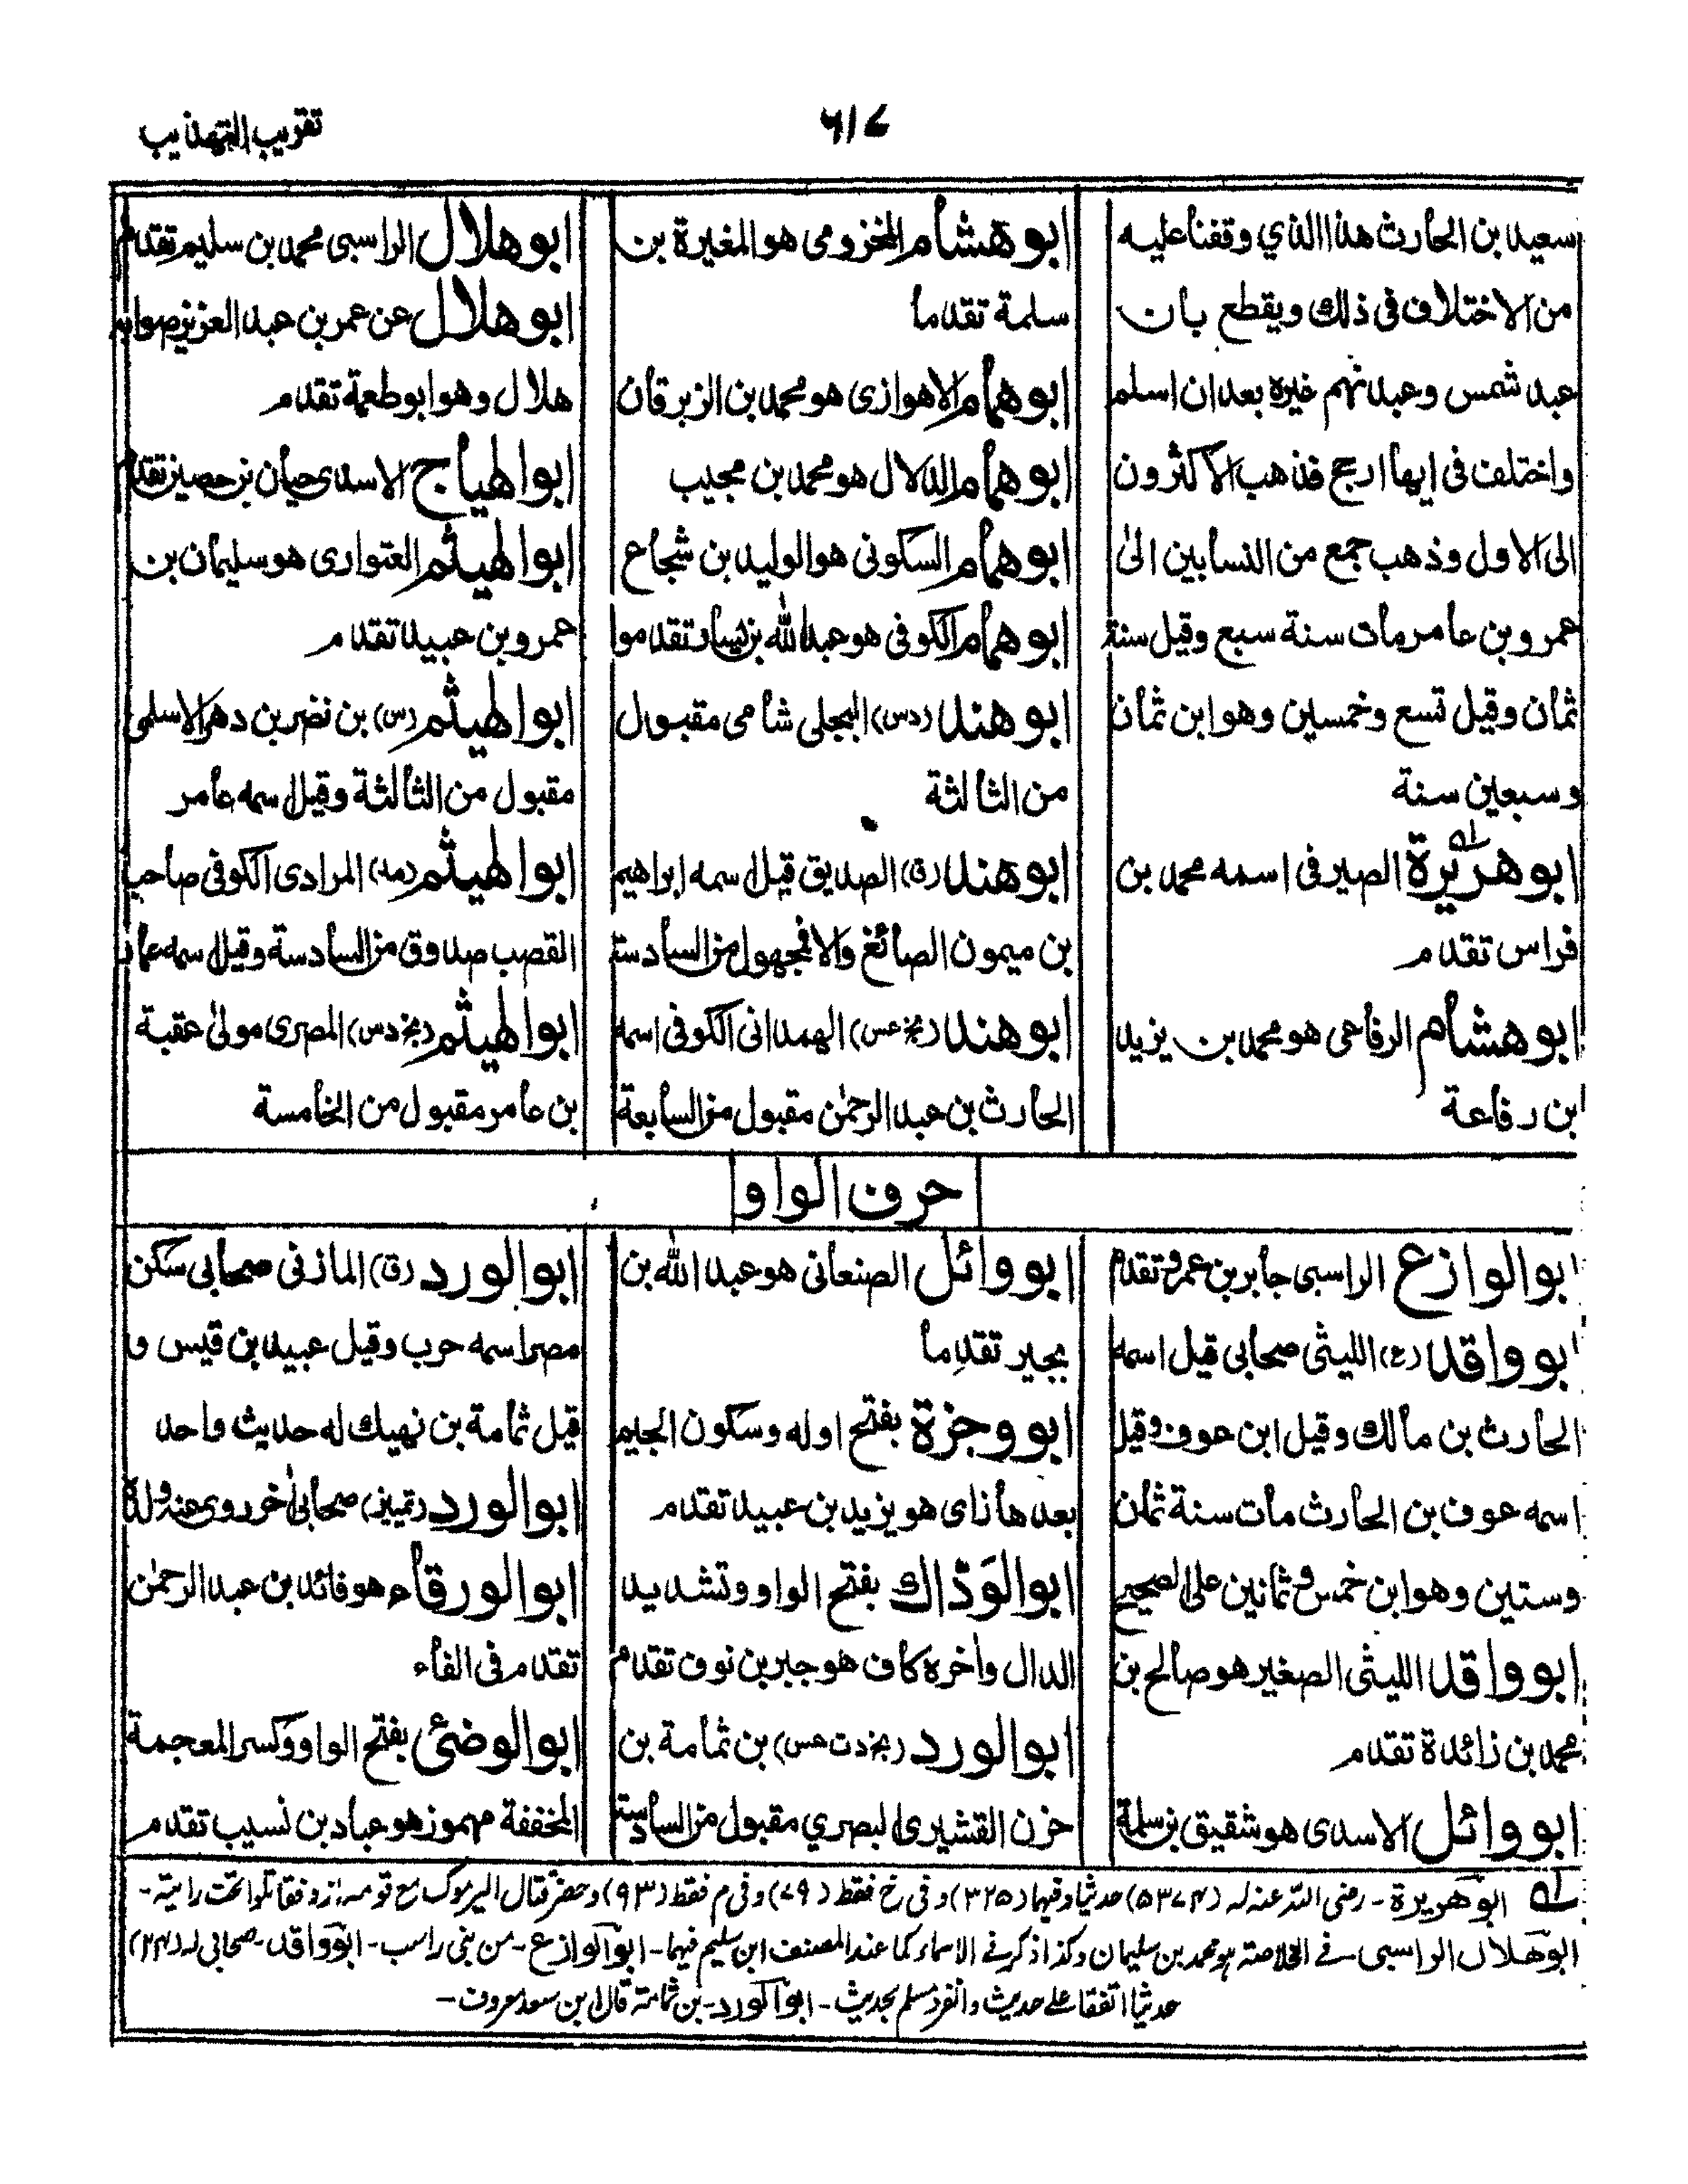 تقريب التهذيب
٦١٧
سعيد بن الحارث هذا الذي وقفنا عليه
من الاختلاف فى ذلك ويقطع بان
عبد شمس وعبد نهم غيره بعد ان اسلم
واختلف فى ايها ارجح فذهب الاكثرون
الى الاول وذهب جمع من النسابين الى
عمرو بن عامر مات سنة سبع وقيل سنة
ثمان وقيل تسع وخمسين وهو ابن ثمان
وسبعين سنة
ابو هريرة الصيرفى اسمه محمد بن
فراس تقدم
ابو هشام الرفاعى هو محمد بن يزيد
ابن رفاعة
ابو هشام المخزومى هو المغيرة بن
سلمة تقدما
ابو همام الاهوازى هو محمد بن الزبرقان
ابو همام الدلال هو محمد بن مجيب
ابو همام السكونى هو الوليد بن شجاع
ابو همام الكوفى هو عبد الله بن يسار تقدموا
ابو هند (دس) البجلى شامى مقبول
من الثالثة
ابو هند (ق) الصديق قيل اسمه ابراهيم
بن ميمون الصائغ والا فمجهول من السادسة
ابو هند (بخ عس) الهمدانى الكوفى اسمه
الحارث بن عبد الرحمٰن مقبول من السابعة
ابو هلال الراسبى محمد بن سليم تقدم
ابو هلال عن عمر بن عبد العزيز صوابه
هلال وهو ابو طعمة تقدم
ابو الهياج الاسدى حيان بن حصين تقدم
ابو الهيثم العتوارى هو سليمان بن
عمرو بن عبيد تقدم
ابو الهيثم (س) بن نضر بن دهر الاسلمى
مقبول من الثالثة وقيل اسمه عامر
ابو الهيثم (مد) المرادى الكوفى صاحب
القصب صدوق من السادسة وقيل اسمه عمار
ابو الهيثم (بخ دس) المصرى مولى عقبة
بن عامر مقبول من الخامسة
حرف الواو
ابو الوازع الراسبى جابر بن عمرو تقدم
ابو واقد (ع) الليثى صحابى قيل اسمه
الحارث بن مالك وقيل ابن عوف وقيل
اسمه عوف بن الحارث مات سنة ثمان
وستين وهو ابن خمس وثمانين على الصحيح
ابو واقد الليثى الصغير هو صالح بن
محمد بن زائدة تقدم
ابو وائل الاسدى هو شقيق بن سلمة
ابو وائل الصنعانى هو عبد الله بن
بحير تقدما
ابو وجزة بفتح اوله وسكون الجيم
بعدها زاى هو يزيد بن عبيد تقدم
ابو الوَدّاك بفتح الواو وتشديد
الدال واخره كاف هو جبر بن نوف تقدم
ابو الورد (بخ دت عس) بن ثمامة بن
حزن القشيرى البصري مقبول من السادسة
ابو الورد (ق) المازنى صحابى سكن
مصر اسمه حرب وقيل عبيد بن قيس و
قيل ثمامة بن نهيك له حديث واحد
ابو الورد (تمييز) صحابى اخر روى عنه ولده
ابو الورقاء هو فائد بن عبد الرحمٰن
تقدم فى الفاء
ابو الوضئ بفتح الواو وكسر المعجمة
المخففة مهموز هو عباد بن نسيب تقدم
ابو هريرة - رضى الله عنه له (٥٣٧٤) حديثا وفيها (٣٢٥) وفى خ فقط (٧٩) وفى م فقط (٩٣) وحضر قتال اليرموك مع قومه ازد فقاتلوا تحت رايته -
ابو هلال الراسبى - فے الخلاصة هو محمد بن سليمان وكذا ذكر فے الاسماء كما عند المصنف ابن سليم فيها - ابو الوازع - من بنى راسب - ابو واقد - صحابى له (٢٤)
حديثا اتفقا على حديث وانفرد مسلم بحديث - ابو الورد - بن ثمامة قال ابن سعد معروف -